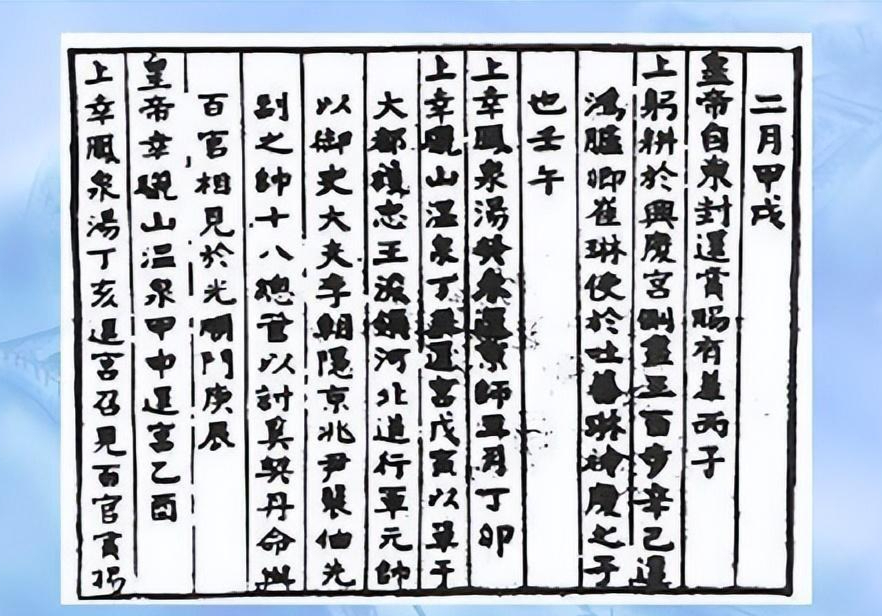 二月甲戌
皇帝自東封還賞賜有差丙子
上躬耕於興慶宮側盡三百步辛巳遣
鴻臚卿崔琳使於吐蕃琳神慶之子
也壬午
上幸鳳泉湯癸未還京師月丁卯
上幸驪山溫泉丁還宮戊寅以單于
大都護忠王浚領河北道行軍元帥
以御史大夫李朝隱京兆尹裴伷先
副之帥十八總管以討奚契丹命與
百官相見於光順門庚辰
皇帝幸驪山溫泉甲申還宮乙酉
上幸鳳泉湯丁亥還宮召見百官賞賜